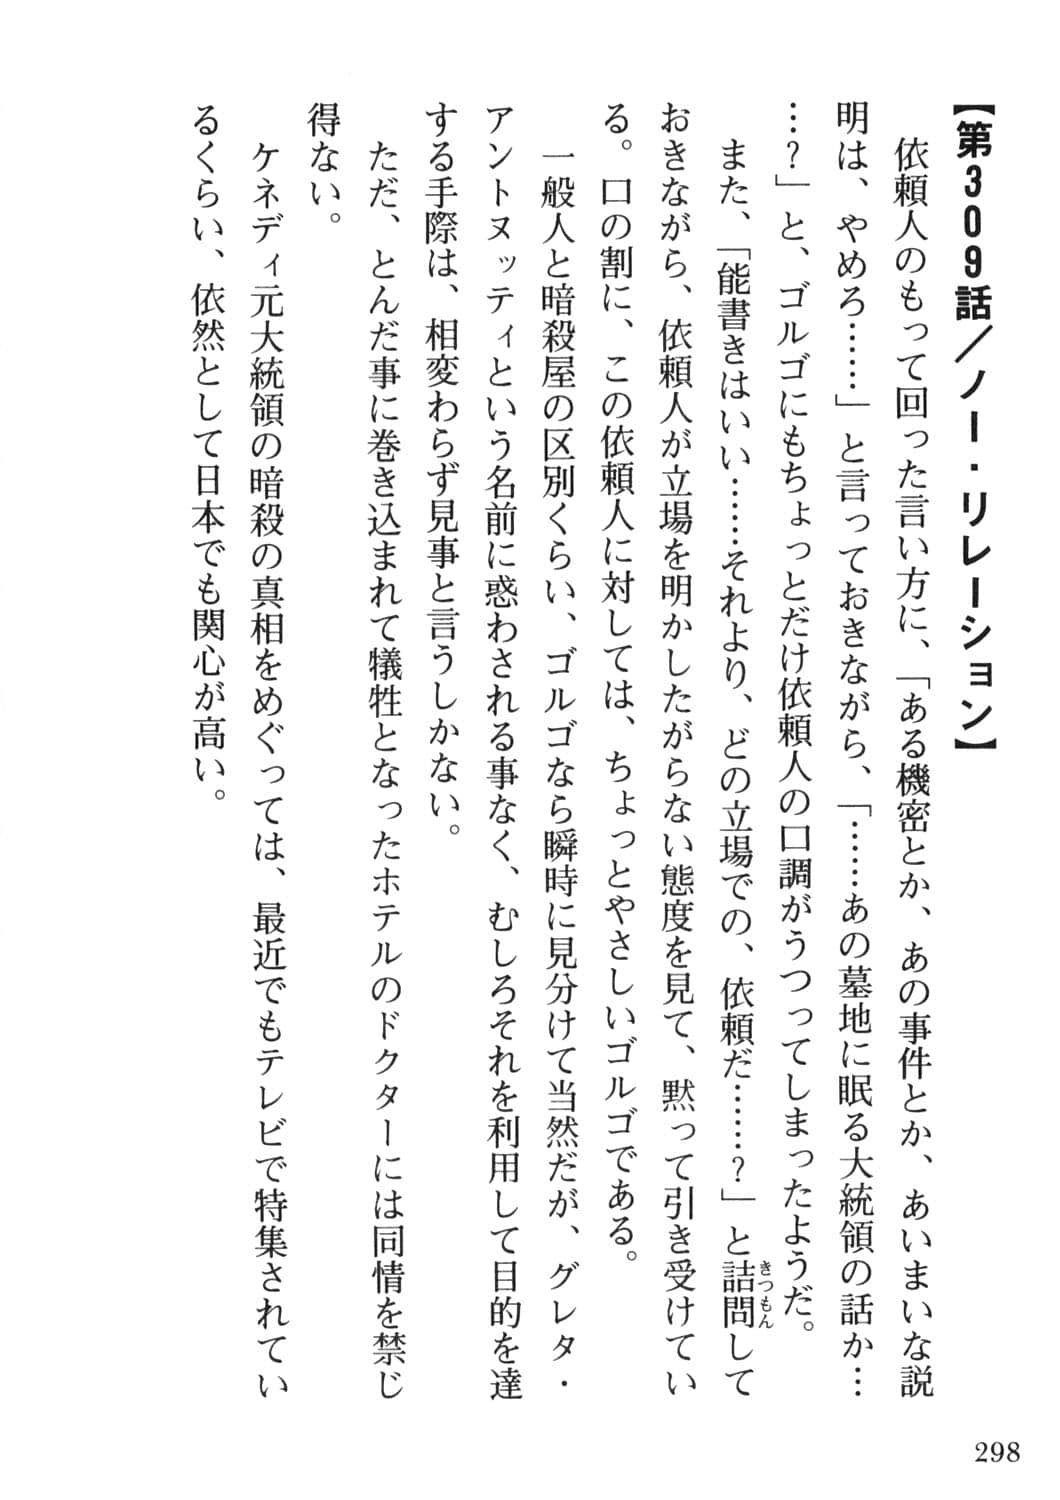 【第309話／ノー・リレーション】
依頼人のもって回った言い方に、「ある機密とか、あの事件とか、あいまいな説
明は、やめろ……」と言っておきながら、「……あの墓地に眠る大統領の話か…
…？」と、ゴルゴにもちょっとだけ依頼人の口調がうつってしまったようだ。
また、「能書きはいい……それより、どの立場での、依頼だ……？」と詰問して
きつもん
おきながら、依頼人が立場を明かしたがらない態度を見て、黙って引き受けてい
る。口の割に、この依頼人に対しては、ちょっとやさしいゴルゴである。
一般人と暗殺屋の区別くらい、ゴルゴなら瞬時に見分けて当然だが、グレタ・
アントヌッティという名前に惑わされる事なく、むしろそれを利用して目的を達
する手際は、相変わらず見事と言うしかない。
ただ、とんだ事に巻き込まれて犠牲となったホテルのドクターには同情を禁じ
得ない。
ケネディ元大統領の暗殺の真相をめぐっては、最近でもテレビで特集されてい
るくらい、依然として日本でも関心が高い。
298